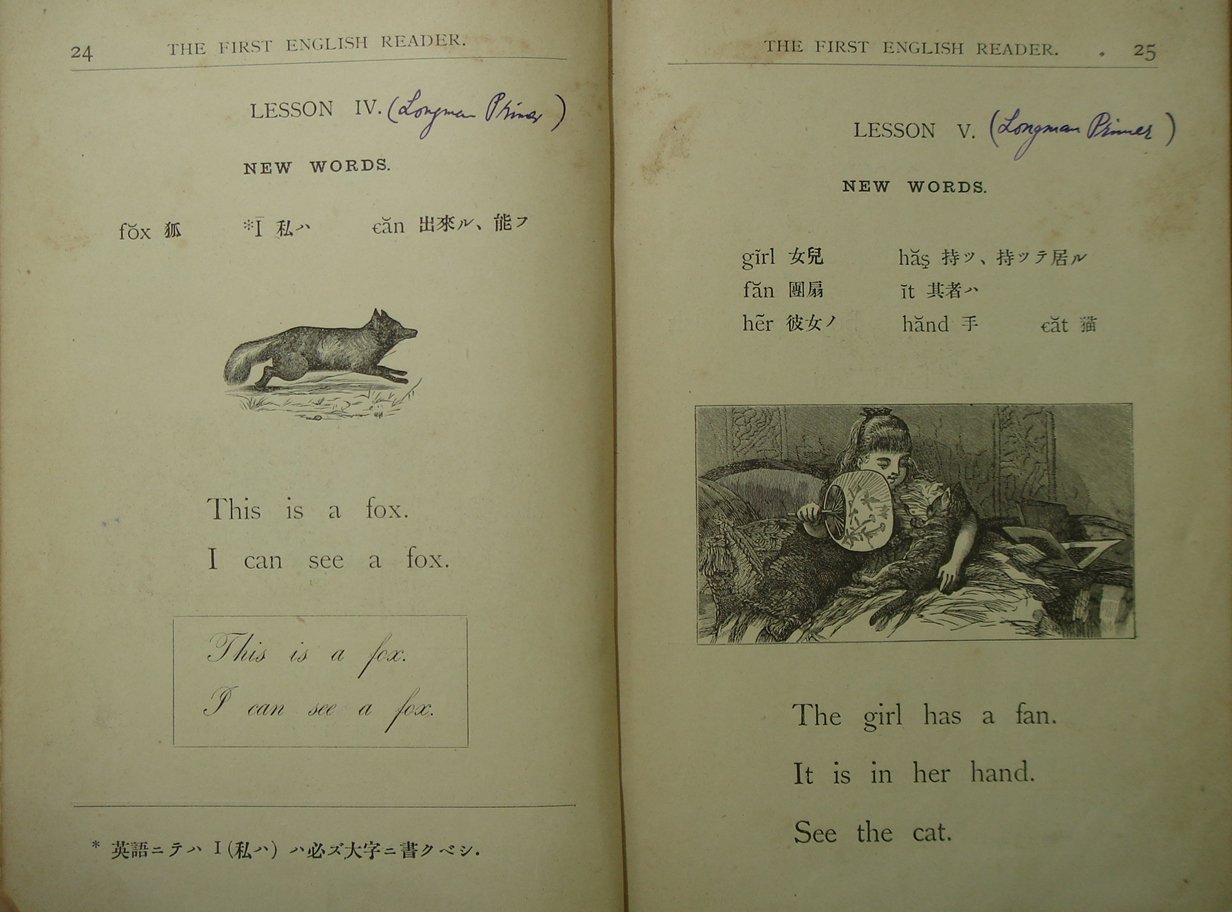 24 THE FIRST ENGLISH READER.
LESSON IV. (Longman Primer)
NEW WORDS.
fŏx 狐 *Ī 私ハ €ăn 出來ル、能フ
This is a fox.
I can see a fox.
This is a fox.
I can see a fox.
* 英語ニテハ I (私ハ) ハ必ズ大字ニ書クベシ.
THE FIRST ENGLISH READER. 25
LESSON V. (Longman Primer)
NEW WORDS.
gĩrl 女兒 hăş 持ツ、持ツテ居ル
făn 團扇 ĭt 其者ハ
hẽr 彼女ノ hănd 手 €ăt 猫
The girl has a fan.
It is in her hand.
See the cat.